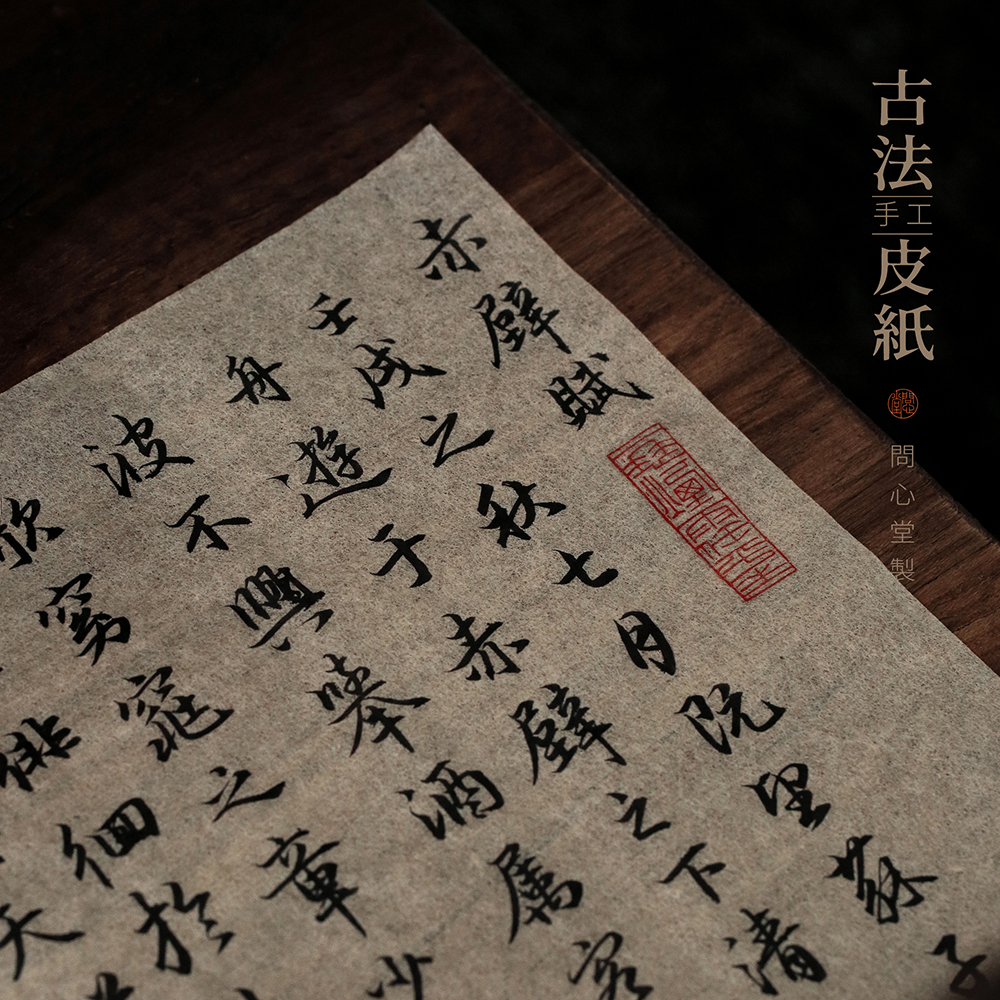 古法
手工
皮紙
問心堂製
赤壁賦
壬戌之秋七月既望蘇子
舟遊于赤壁之下清
波不興舉酒屬客
歌窈窕之章少
徘徊於
天